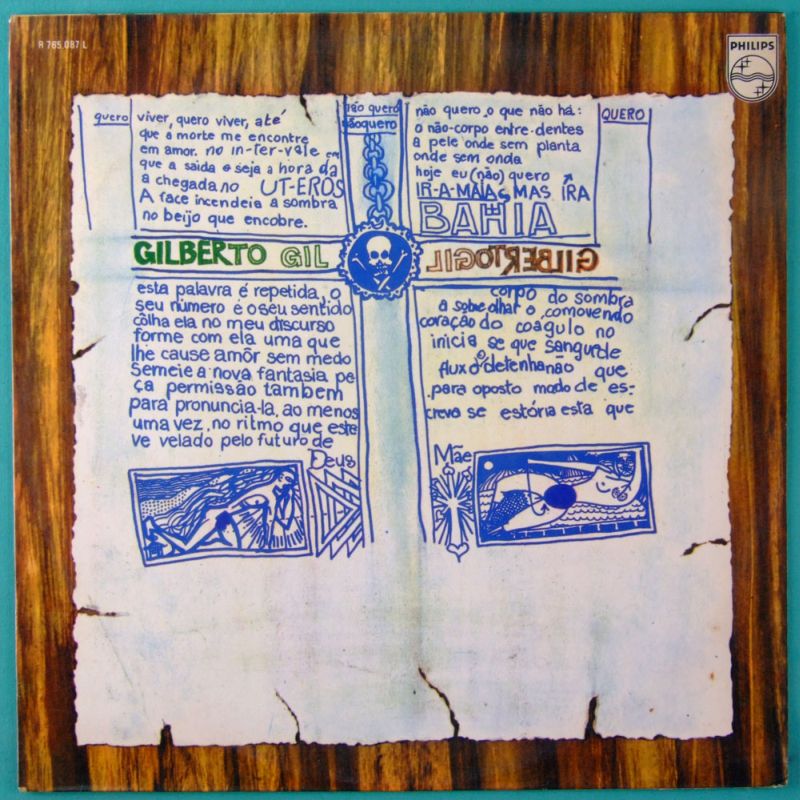 R 765.087 L
PHILIPS
quero
viver, quero viver, até
que a morte me encontre
em amor. no in-ter-vale em
que a saida e seja a hora da
a chegada no UT-EROS
A face incendeia a sombra
no beijo que encobre.
não quero
nãoquero
não quero o que não há:
o não-corpo entre-dentes
a pele onde sem planta
onde sem onda
hoje eu (não) quero
IR-A-MAIAS MAS IRA
BAHIA
QUERO
GILBERTO GIL
GILBERTO GIL
esta palavra é repetida, o
seu número é o seu sentido
côlha ela no meu discurso
forme com ela uma que
lhe cause amôr sem medo
Semeie a nova fantasia pe
ça permissão tambem
para pronuncia-la, ao menos
uma vez, no ritmo que este
ve velado pelo futuro de
Deus
corpo do sombra
a sobre olhar o comovendo
coração do coágulo no
inicia se que sangue de
flux o detenha não que
para oposto modo de es-
creva se estória esta que
Mãe